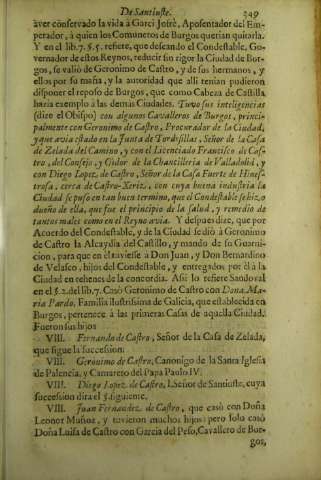 De Santiuste. 249
àver conservado la vida à Garci Jofrè, Aposentador del Em-
perador, à quien los Comuneros de Burgos querian quitarla.
Y en el lib. 7. §. 5. refiere, que deseando el Condestable, Go-
vernador de estos Reynos, reducir su rigor la Ciudad de Bur-
gos, se valiò de Geronimo de Castro, y de sus hermanos, y
ellos por su maña, y la autoridad que alli tenian pudieron
disponer el reposo de Burgos, que como Cabeza de Castilla
hazia exemplo à las demàs Ciudades. Tuvo sus inteligencias
(dize el Obispo) con algunos Cavalleros de Burgos, princi-
palmente con Geronimo de Castro, Procurador de la Ciudad,
y que avia estado en la Junta de Tordesillas, Señor de la Casa
de Zelada del Camino, y con el Licenciado Francisco de Cas-
tro, del Consejo, y Oidor de la Chancilleria de Valladolid, y
con Diego Lopez de Castro, Señor de la Casa Fuerte de Hines-
trosa, cerca de Castro-Xeriz, con cuya buena industria la
Ciudad se puso en tan buen termino, que el Condestable se hizo
dueño de ella, que fue el principio de la salud, y remedio de
tantos males como en el Reyno avia. Y despues dize, que por
Acuerdo del Condestable, y de la Ciudad se diò à Geronimo
de Castro la Alcaydia del Castillo, y mando de su Guarni-
cion, para que en el tuviesse à Don Juan, y Don Bernardino
de Velasco, hijos del Condestable, y entregados por èl à la
Ciudad en rehenes de la concordia. Assi lo refiere Sandoval
en el §. 2. del lib. 7. Casò Geronimo de Castro con Dona Ma-
ria Pardo, Familia ilustrissima de Galicia, que establecida en
Burgos, pertenece à las primeras Casas de aquella Ciudad.
Fueron sus hijos
VIII. Fernando de Castro, Señor de la Casa de Zelada,
que sigue la succession.
VIII. Geronimo de Castro, Canonigo de la Santa Iglesia
de Palencia, y Camarero del Papa Paulo IV.
VIII. Diego Lopez de Castro, I. Señor de Santiuste, cuya
succession dirà el §. siguiente.
VIII. Juan Fernandez de Castro, que casò con Doña
Leonor Muñoz, y tuvieron muchos hijos: pero solo casò
Doña Luisa de Castro con Garcia del Peso, Cavallero de Bur-
gos,